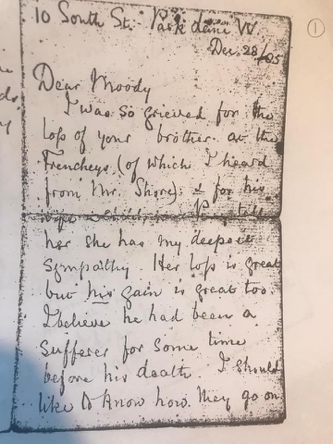 10 South St. Park Lane W.
Dec. 28/85
①
Dear Moody
I was so grieved for the
loss of your brother at the
Trencheys (of which I heard
from Mr. Shore): & for his
wife & children. Pray tell
her she has my deepest
sympathy. Her loss is great
but his gain is great too.
I believe he had been a
sufferer for some time
before his death. I should
like to know how they go on